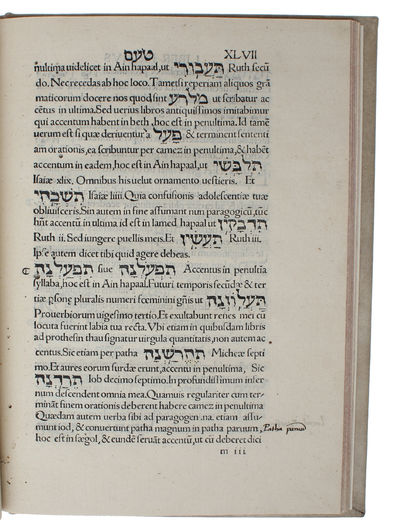 טעם XLVII
nultima uidelicet in Ain hapaal, ut תַּעֲבוּרִי Ruth secũ
do. Nec recedas ab hoc loco. Tametsi reperiam aliquos grã
maticorum docere nos quod sint מלרע ut scribatur ac
cẽtus in ultima. Sed uerius libros antiquissimos imitabor
qui accentum habent in beth, hoc est in penultima. Id tamẽ
uerum est si quæ deriuentur a פעל & terminent sententi
am orationis, ea scribuntur per camez in penultima, & habẽt
accentum in eadem, hoc est in Ain hapaal, ut
תִלְבָּשִׁי
Isaiæ xlix. Omnibus his uelut ornamento uestieris. Et
תִּשְׁכָּחִי Isaiæ liiii. Quia confusionis adolescentiæ tuæ
obliuisceris. Sin autem in fine assumant nun paragogicũ, tũc
hñt accentũ in ultima id est in lamed hapaal ut תִּדְבָּקִין
Ruth ii. Sed iungere puellis meis. Et תַּעֲשִׂין Ruth iii.
Ipse autem dicet tibi quid agere debeas.
תִּפְעַלְנָה siue תִּפְעֹלְנָה Accentus in penultĩa
syllaba, hoc est in Ain hapaal. Futuri temporis secũdæ & ter
tiæ psonę pluralis numeri fœminini gñis ut תַּעְלֹזְנָה
Prouerbiorum uigesimo tertio. Et exultabunt renes mei cũ
locuta fuerint labia tua recta. Vbi etiam in quibusdam libris
ad prothesin thau signatur uirgula quantitatis, non autem ac
centus. Sic etiam per patha תֶּחֱרַשְׁנָה Micheæ septi
mo. Et aures eorum surdæ erunt, accentu in penultima, Sic
תֵּרַדְנָה Iob decimo septimo. In profundissimum infer
num descendent omnia mea. Quamuis regulariter cum ter
minãt finem orationis deberent habere camez in penultima
Quædam autem uerba sibi ad paragogen na. etiam assu-
munt iod, & conuertunt patha magnum in patha paruum,
hoc est in sægol, & eundẽ seruãt accentũ, ut cũ deberet dici
m iii